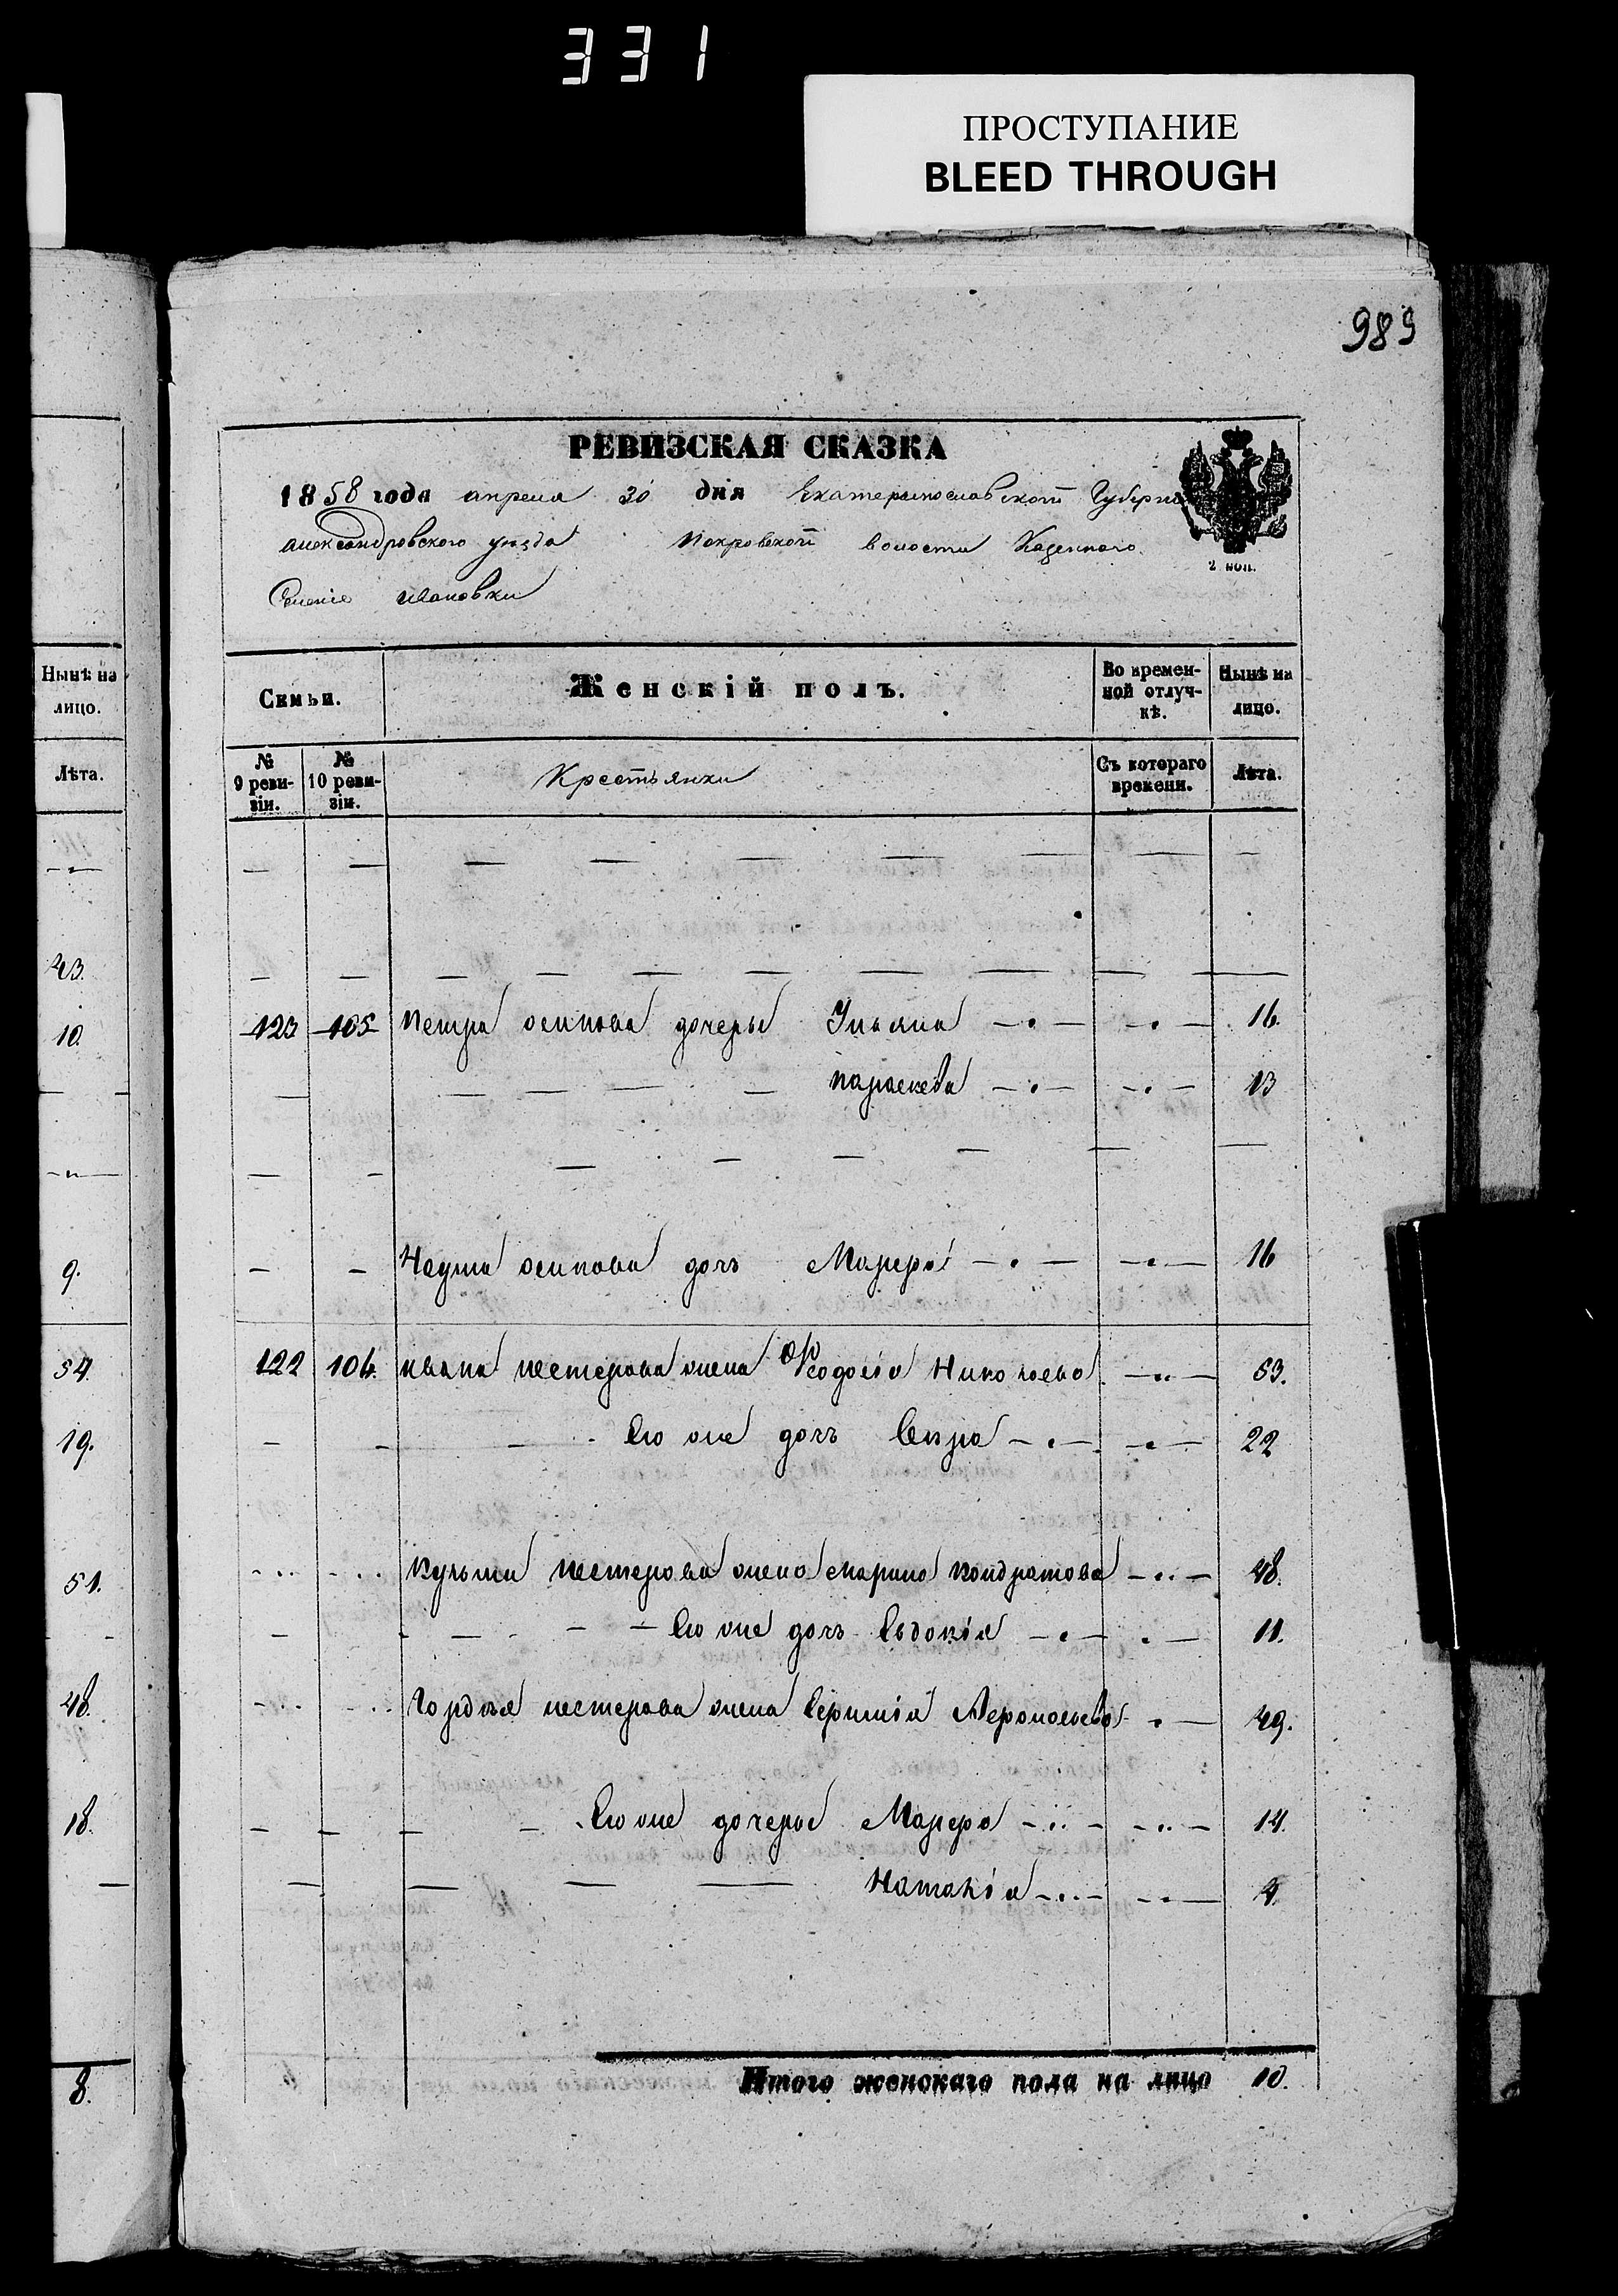 331
ПРОСТУПАНИЕ
BLEED THROUGH
989
РЕВИЗСКАЯ СКАЗКА
1858 года апреля 30 дня Екатеринославской Губерніи
александровского уезда Покровской волости Казенного
Селенія Ивановки
2 коп.
Нынѣ на лицо.
Лѣта.
43.
10.
9.
54.
19.
51.
48.
18.
8.
Семьи.
Женскій полъ.
Во временной отлучкѣ.
Нынѣ на лицо.
№ 9 ревизіи.
№ 10 ревизіи.
Крестьянки
Съ котораго времени.
Лѣта.
123 105 Петра осипова дочеры Ульяна 16.
параскева 13
Наума осипова дочь Марфа 16
122 106. ивана нестерова жена Феодосія Николаева 53.
Его же дочь 22
Кузьмы нестерова жена марина Кондратова 48.
Его же дочь Евдокія 11.
Гордѣя нестерова жена 49.
Его же дочеры Марфа 14.
Наталія 4.
Итого женскаго пола на лицо 10.